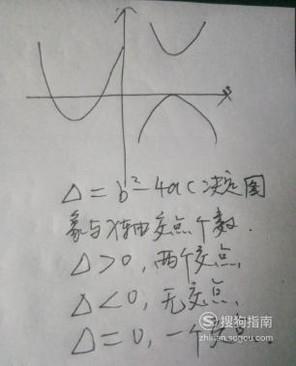 Δ=b²-4ac决定图
象与x轴交点个数.
Δ>0,两个交点,
Δ<0,无交点,
Δ=0,一个交点.
搜狗指南
zhinan.sogou.com